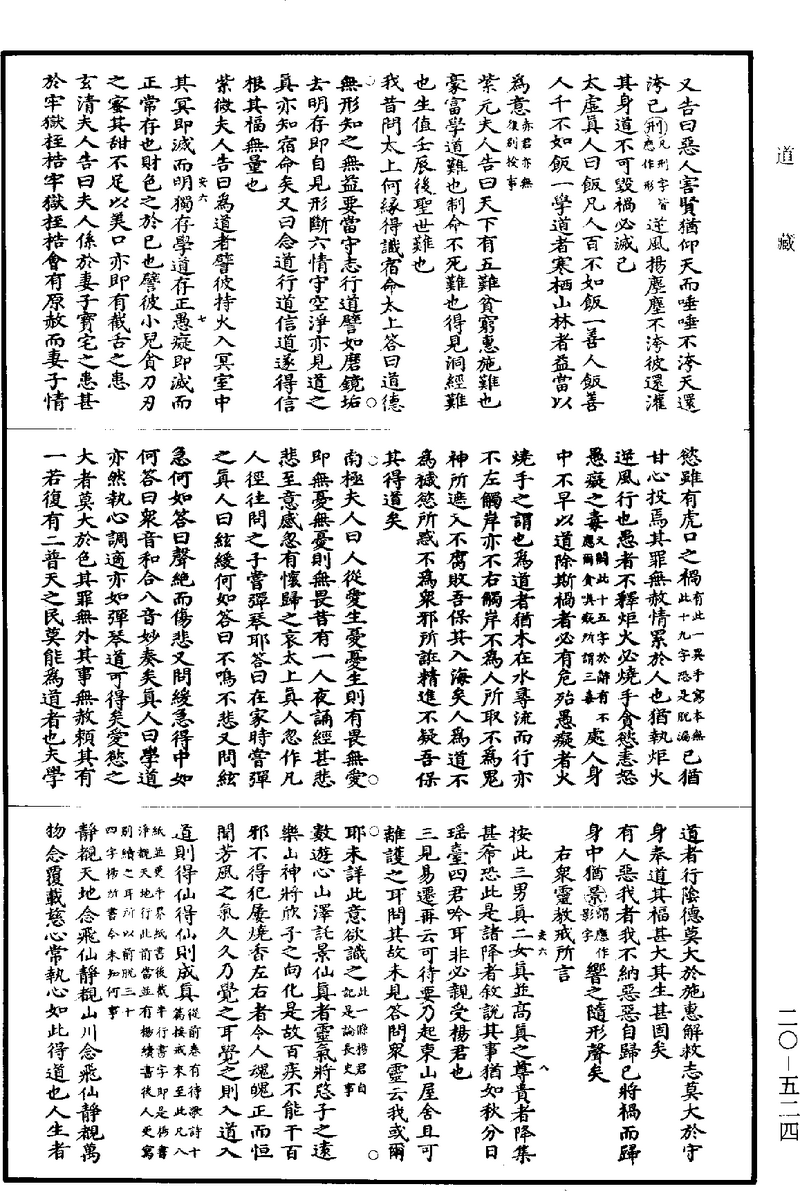 道藏
又告曰惡人害賢猶仰天而唾唾不洿天還
洿己刑凡刑字皆應作形逆風揚塵塵不洿彼還灌
其身道不可毀禍必滅己
太虛真人曰飯凡人百不如飯一善人飯善
人千不如飯一學道者寒栖山林者益當以
為意亦君亦無復別授事
紫元夫人告曰天下有五難貧窮惠施難也
豪富學道難也制命不死難也得見洞經難
也生值壬辰後聖世難也
我昔問太上何緣得識宿命太上答曰道德
無形知之無益要當守志行道譬如磨鏡垢
去明存即自見形斷六情守空淨亦見道之
真亦知宿命矣又曰念道行道信道遂得信
根其福無量也
紫微夫人告曰為道者譬彼持火入冥室中
安六 七
其冥即滅而明獨存學道存正愚癡即滅而
正常存也財色之於己也譬彼小兒貪刀刃
之蜜其甜不足以美口亦即有截舌之患
玄清夫人告曰夫人係於妻子寶宅之患甚
於牢獄桎梏牢獄桎梏會有原赦而妻子情
慾雖有虎口之禍有此一異手寫本無此十九字恐是脫漏己猶
甘心投焉其罪無赦情累於人也猶執炬火
逆風行也愚者不釋炬火必燒手貪慾恚怒
愚癡之毒又闕此十五字於辭有不應爾貪嗔癡所謂三毒處人身
中不早以道除斯禍者必有危殆愚癡者火
燒手之謂也為道者猶木在水尋流而行亦
不左觸岸亦不右觸岸不為人所取不為鬼
神所遮又不腐敗吾保其入海矣人為道不
為穢慾所惑不為眾邪所誑精進不疑吾保
其得道矣
南極夫人曰人從愛生憂憂生則有畏無愛
即無憂無憂則無畏昔有一人夜誦經甚悲
悲至意感忽有懷歸之哀太上真人忽作凡
人徑往問之子嘗彈琴耶答曰在家時嘗彈
之真人曰絃緩何如答曰不鳴不悲又問絃
急何如答曰聲絕而傷悲又問緩急得中如
何答曰眾音和合八音妙奏矣真人曰學道
亦然執心調適亦如彈琴道可得矣愛慾之
大者莫大於色其罪無外其事無赦賴其有
一若復有二普天之民莫能為道者也夫學
道者行陰德莫大於施惠解救志莫大於守
身奉道其福甚大其生甚固矣
有人惡我者我不納惡惡自歸己將禍而歸
身中猶景謂應作影字響之隨形聲矣
右眾靈教戒所言
安六 八
按此三男真二女真並高真之尊貴者降集
甚希恐此是諸降者敘說其事猶如秋分日
瑤臺四君吟耳非必親受楊君也
三見易遷再云可待要乃起東山屋舍且可
離護之耳問其故未見答問眾靈云我或爾
耶未詳此意欲識之此一條楊君自記是論長史事
數遊心山澤託景仙真者靈氣將愍子之遠
樂山神將欣子之向化是故百疾不能干百
邪不得犯屢燒香左右者令人魂魄正而恒
聞芳風之氣久久乃覺之耳覺之則入道入
道則得仙得仙則成真從前卷有待歌詩十篇接戒來至此凡八紙並更手界紙書後截半行書字即是楊書淨觀天地行此前當並有楊續書後人更寫別續之耳所以前脫三十四字楊所書今未知何事
靜觀天地念飛仙靜觀山川念飛仙靜觀萬
物念覆載慈心常執心如此得道也人生者
二〇—五二四